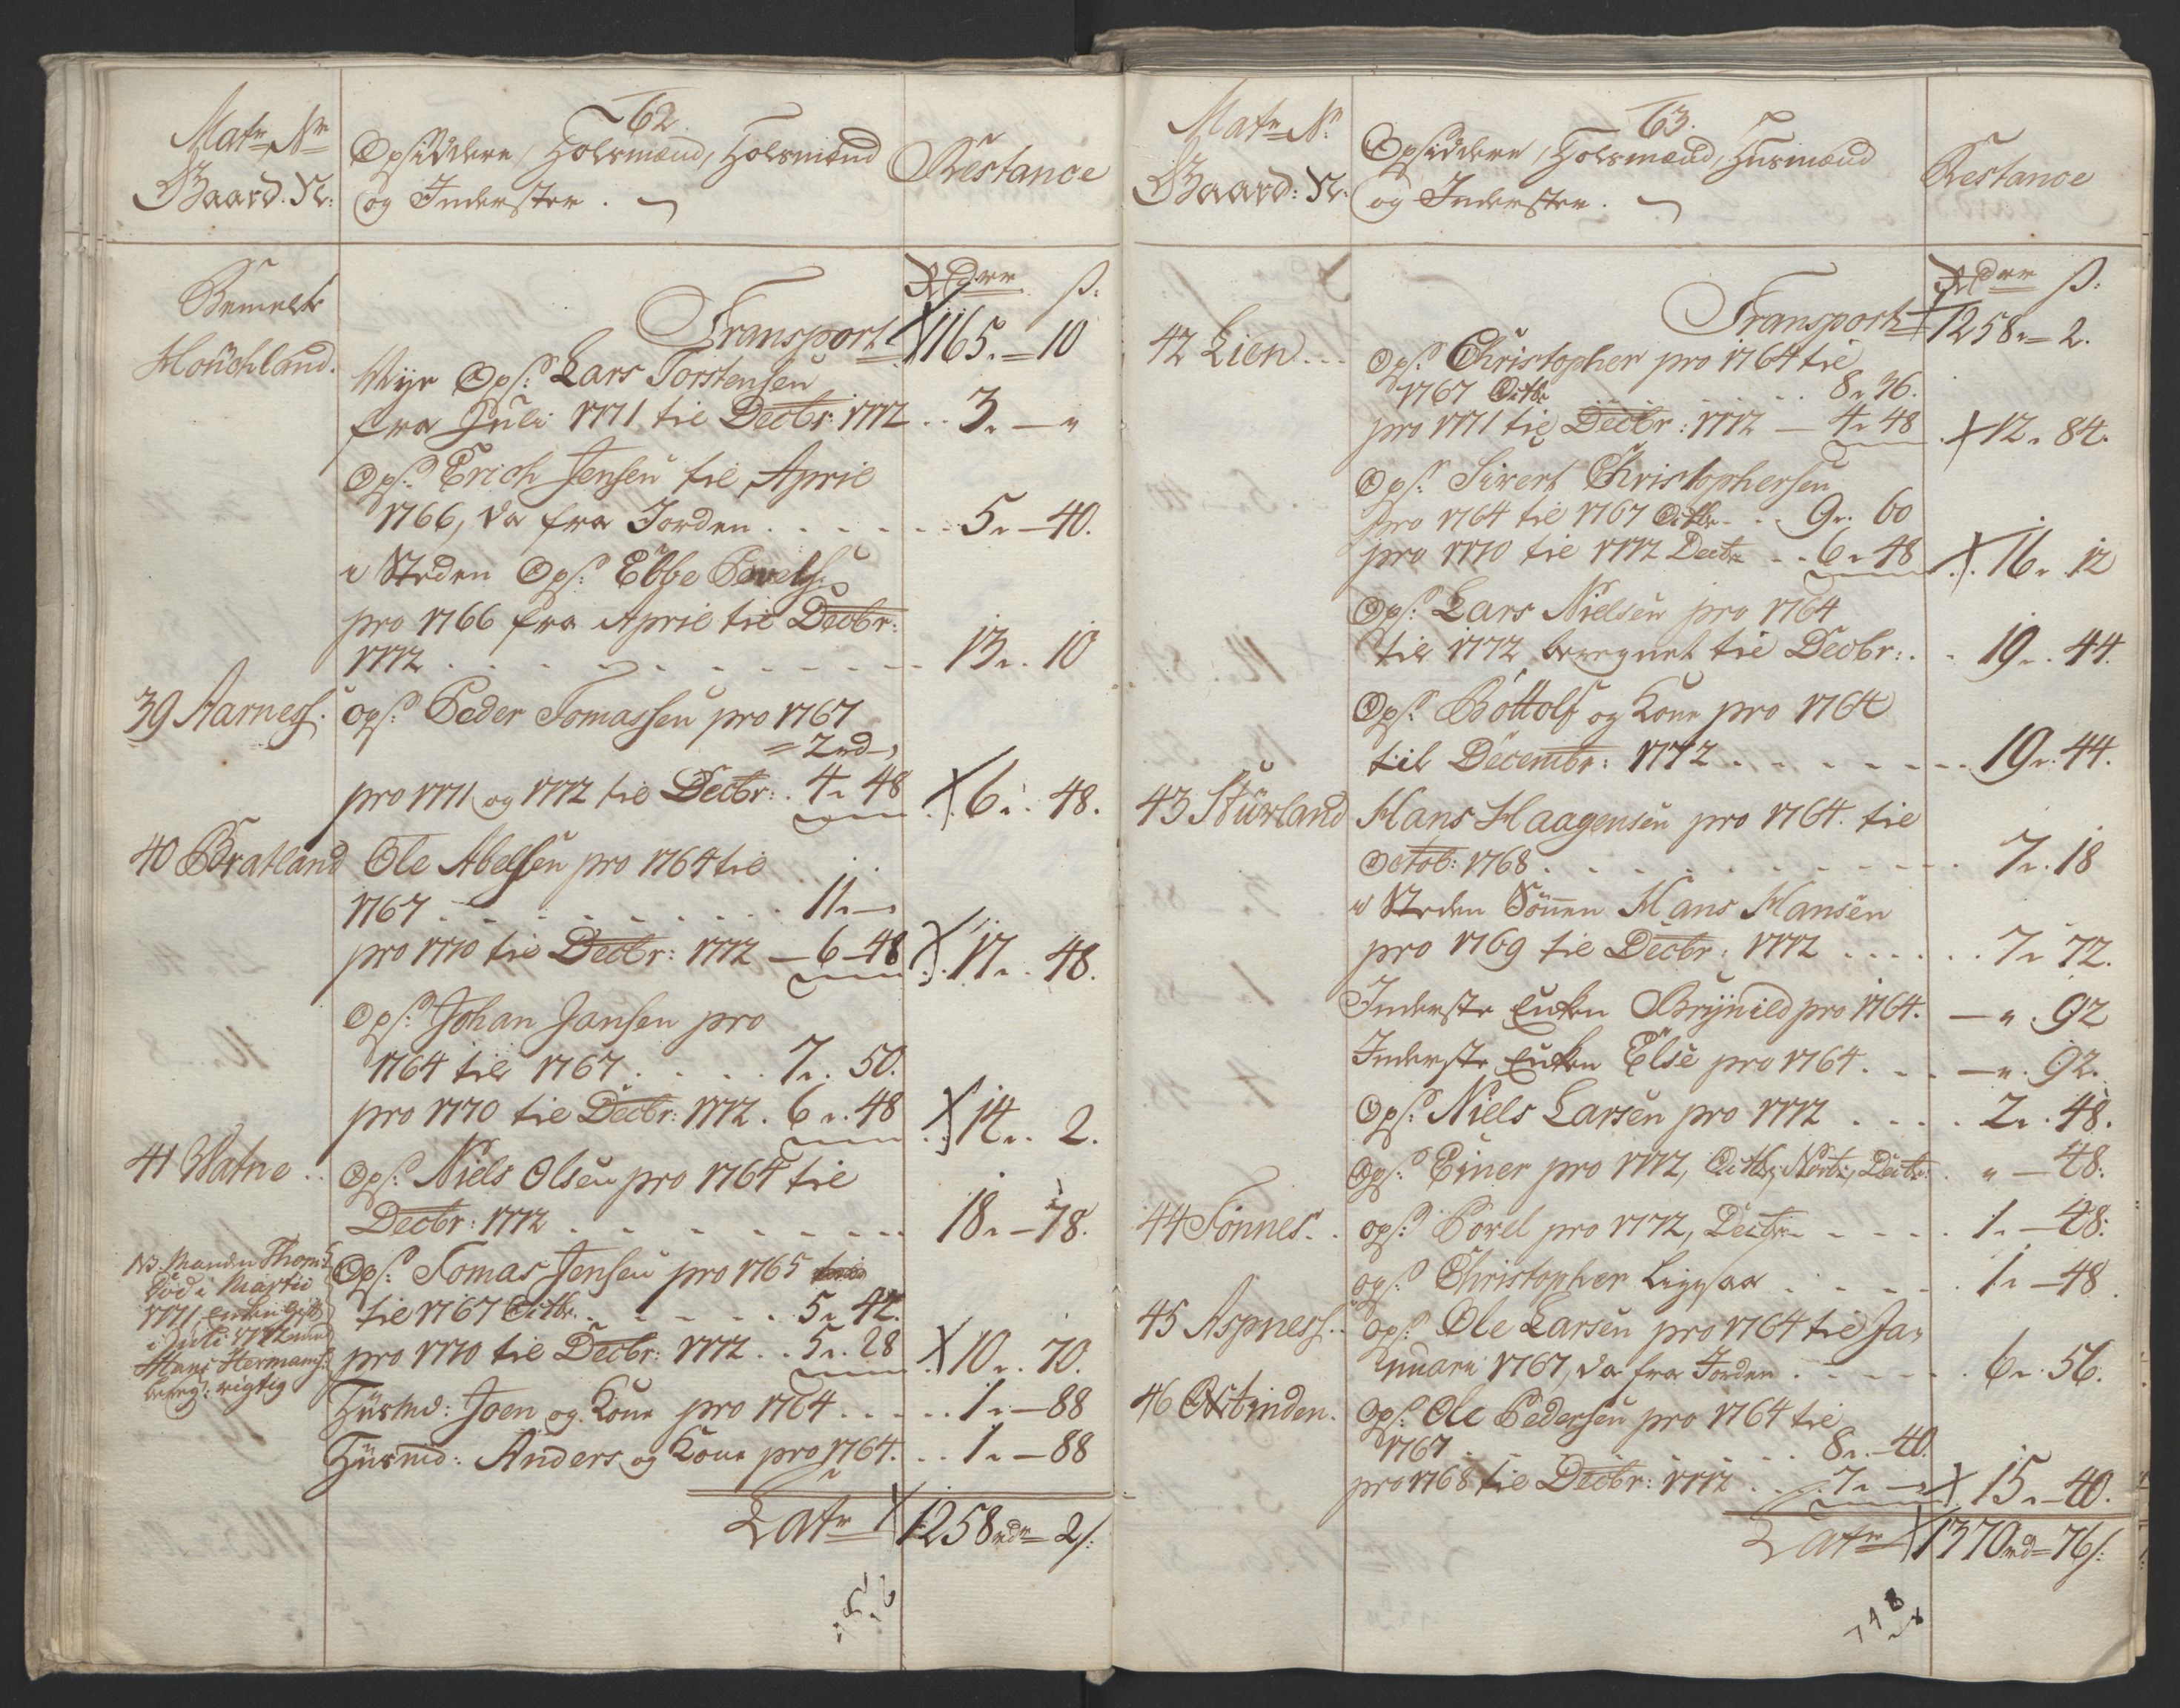 62.
Matr. Nr.
Gaard. N:
Opsiddere, Holsmænd, Husmænd
og Inderster.
Restance
Rdrr ß:
Bemelte
Houchland.
Transport 1165. 10
Nye Ops: Lars Torstensen
fra Juli 1771 til Decbr: 1772 . . 3. — „
Ops: Erich Jensen til April
1766, da fra Jorden . . . . . . 5. — 40.
i Steden Ops: Ebbe Povels:
pro 1766 fra April til Decbr:
1772 . . . . . . . . . . 13. . 10
39 Aarness. Ops: Peder Tomassen pro 1767
= 2rd „
pro 1771 og 1772 til Decbr: . 4. 48 6. . 48.
40 Bratland Ole Abelsen pro 1764 til
1767 . . . . . . . . 11. —
pro 1770 til Decbr: 1772 — 6 — 48 17. . 48.
Ops: Johan Jansen pro
1764 til 1767 . . . . . 7. . 50.
pro 1770 til Decbr: 1772 . 6. . 48 14. . 2.
41 Watne . . Ops: Niels Olsen pro 1764 til
Decbr: 1772 . . . . . . . . 18. — 78.
NB. Manden Thom:
Död i Martii
1771, Enken gift
i Juli 1772 med
Hans Hermans:
bereg: rigtig
Ops: Tomas Jensen pro 1765
til 1767 Octbr . . . . . . 5. 42.
pro 1770 til Decbr: 1772 . . 5. 28 10. . 70.
Husmd: Joen og Kone pro 1764 . . . . . 1. — 88
Husmd: Anders og Kone pro 1764. . . 1. — 88
Latr 1258 rdr 2 ß:
63.
Matr. N:
Gaard: N:
Opsiddere, Holsmænd, Husmænd
og Inderster.
Restance
Rdrr ß:
Transport 1258. — 2.
42 Lien . . . Ops: Christopher pro 1764 til
1767 Octbr . . . . . 8. 36.
pro 1771 til Decbr: 1772 — 4. 48 12. 84.
Ops: Sivert Christophersen
pro 1764 til 1767 Octbr . . 9. 60
pro 1770 til 1772 Decbr . . 6. 48 16. 12
Ops: Lars Nielsen pro 1764
til 1772 beregnet til Decbr: . . 19. . 44.
Ops: Bottolf og Kone pro 1764
til Decembr: 1772 . . . . . . . 19. . 44.
43 Stuvland Hans Haagensen pro 1764. til
Octob: 1768 . . . . . . . . . . 7. . 18
i Steden Sönnen Hans Hansen
pro 1769 til Decbr: 1772 . . . . . . 7. 72.
Inderste Enken Brynild pro 1764. — „ . 92
Inderste Enken Else pro 1764 . . . — „ . 92.
Ops: Niels Larsen pro 1772 . . . . 2. . 48.
Ops: Einer pro 1772, Octbr, Novbr, Decbr . „ — 48:
44 Tonnes . . ops: Povel pro 1772, Decbr . . . . . 1. — 48:
ops: Christopher Ligesaa . . . . . 1. — 48
45 Aspness . . Ops: Ole Larsen pro 1764 til Ja,,
nuarii 1767, da fra Jorden . . . . . . 6. . 56.
46 Ostinden. Ops: Ole Pedersen pro 1764 til
1767 . . . . . . . . 8. . — 40.
pro 1768 til Decbr: 1772 . . . . 7. — „ 15. — 40.
Latr 1370 rd 76 ß: